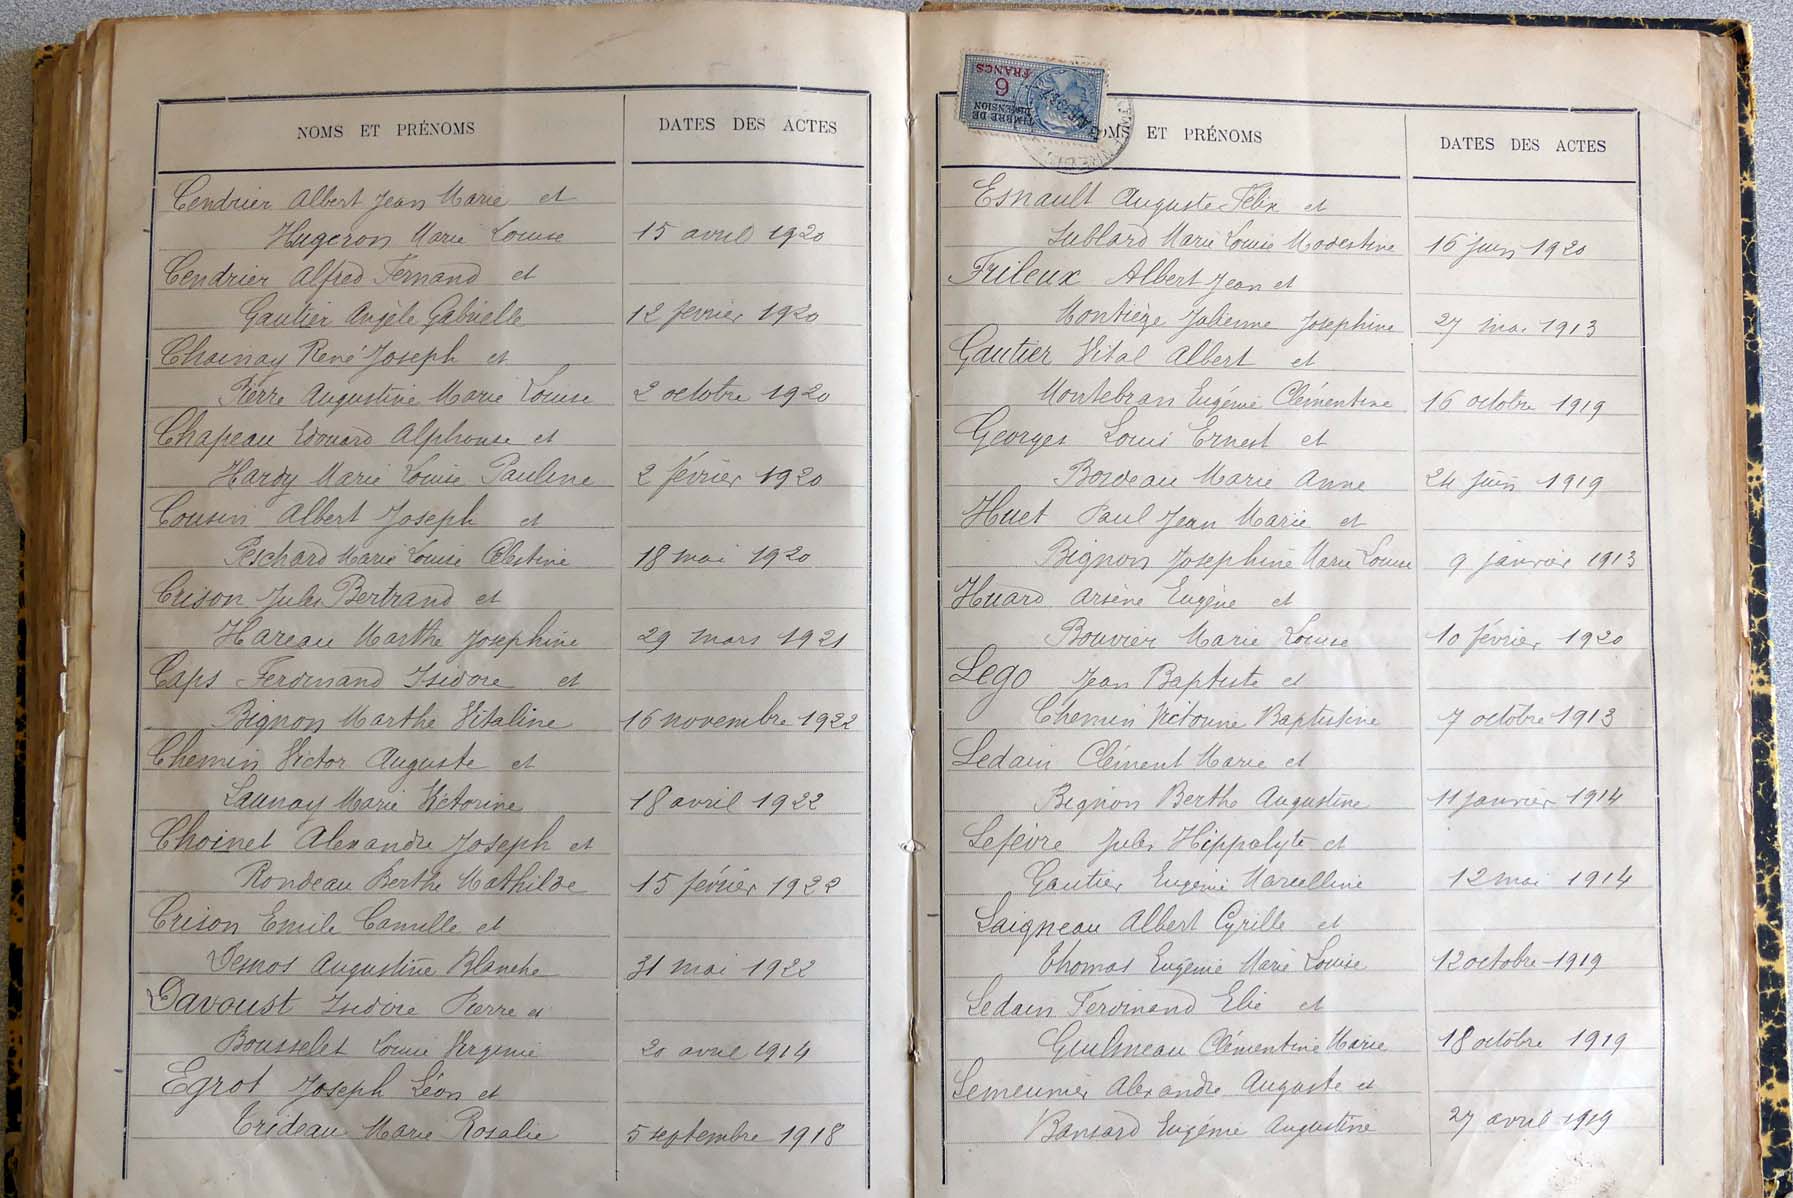 NOMS ET PRÉNOMS
DATES DES ACTES
Cendrier Albert Jean Marie et
Hugeron Marie Louise 15 avril 1920
Cendrier Alfred Fernand et
Gautier Angèle Gabrielle 12 fevrier 1920
Chainay René Joseph et
Pierre Augustine Marie Louise 2 octobre 1920
Chapeau Edouard Alphonse et
Hardy Marie Louise Pauline 2 février 1920
Cousin Albert Joseph et
Peschard Marie Louise Célestine 18 mai 1920
Crison Jules Bertrand et
Hareau Marthe Josephine 29 mars 1921
Caps Ferdinand Isidore et
Bignon Marthe Vitaline 16 novembre 1922
Chemin Victor Auguste et
Launay Marie Victorine 18 avril 1922
Choinet Alexandre Joseph et
Rondeau Berthe Mathilde 15 février 1922
Crison Emile Camille et
Demos Augustine Blanche 31 mai 1922
Davoust Isidore Pierre et
Bousselet Louise Virginie 20 avril 1914
Egrot Joseph Léon et
Trideau Marie Rosalie 5 septembre 1918
TIMBRE DE
DIMENSION
6
FRANCS
OMS ET PRÉNOMS
DATES DES ACTES
Esnault Auguste Félix et
Sublard Marie Louise Modestine 16 juin 1920
Frileux Albert Jean et
Montiège Julienne Josephine 27 mai 1913
Gautier Vital Albert et
Montebran Eugénie Clémentine 16 octobre 1919
Georges Louis Ernest et
Bordeau Marie Anne 24 juin 1919
Huet Paul Jean Marie et
Bignon Josephine Marie Louise 9 janvier 1913
Huard Arsène Eugène et
Bouvier Marie Louise 10 février 1920
Lego Jean Baptiste et
Chemin Victorine Baptistine 7 octobre 1913
Ledain Clément Marie et
Bignon Berthe Augustine 11 janvier 1914
Lefèvre Jules Hippolyte et
Gautier Eugénie Marcelline 12 mai 1914
Laigneau Albert Cyrille et
Thomas Eugénie Marie Louise 12 octobre 1919
Ledain Ferdinand Elie et
Guilmeau Clémentine Marie 18 octobre 1919
Lemeunier Alexandre Auguste et
Bansard Eugénie Augustine 27 avril 1919